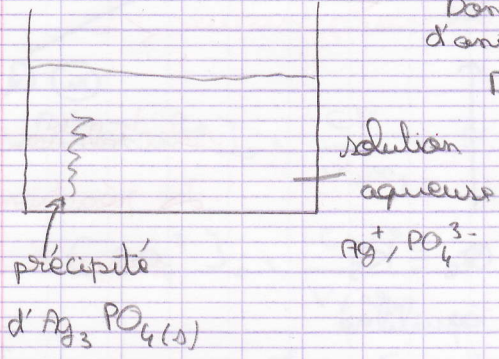 Don
d'an
solution
aqueuse
Ag⁺, PO₄³⁻
précipité
d'Ag₃ PO₄(s)